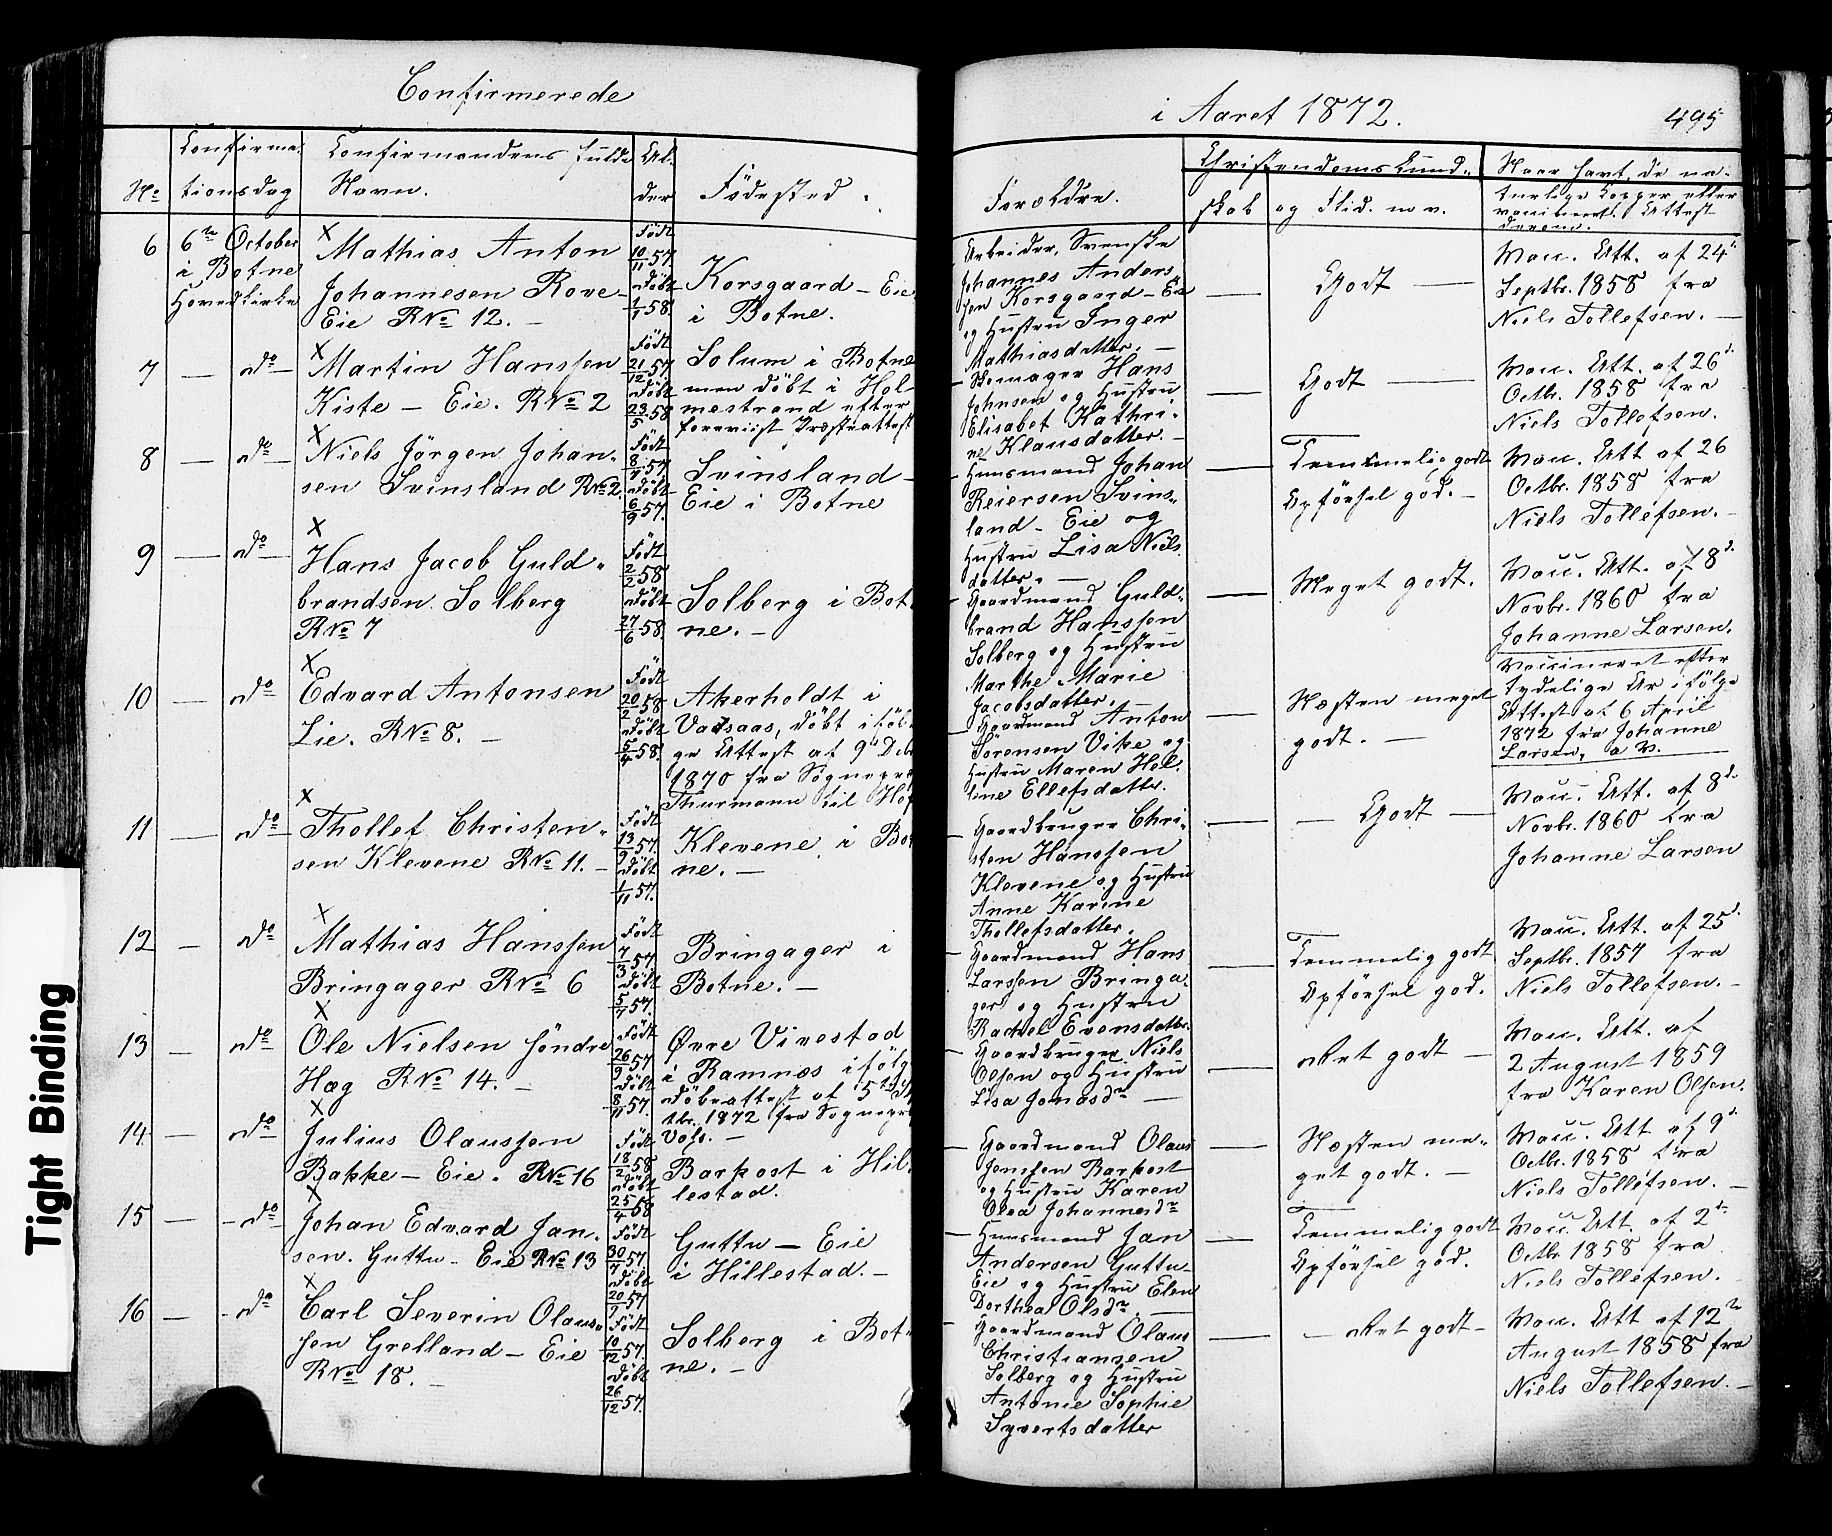 Confirmerede
i Aaret 1872.
495
No
Confirma-
tionsdag
Confirmandens fulde
Navn.
Al-
der
Fødested.
Forældre.
Christendomskund-
skab og Flid. m. v.
Naar havt de na-
turlige Kopper eller
vaccineret. Attest
derom.
6
6te October
i Botne
Hovedkirke
Mathias Anton
Johannesen Rove-
Eie RNo 12.
Født
10/11 57.
døbt
1/1 58.
Korsgaard - Eie
i Botne.
Arbeider, Svenske
Johannes Anders
sen Korsgaard - Eie
og Hustru Inger
Mathiasdatter.
Godt
Vacc. Att. af 24
Septbr. 1858 fra
Niels Tollefsen.
7 - do -
Martin Hanssen
Kiste - Eie. RNo 2
Født
21/12 57.
døbt
23/5 58
Solum i Botne
men døbt i Hol-
mestrand efter
foreviist Præsteattest
Skomager Hans
Johnsen og Hustru
Elisabet Kathri-
ne Klausdatter.
Godt
Vacc. Att. af 26
Octbr. 1858 fra
Niels Tollefsen.
8 - do -
Niels Jörgen Johan-
sen Svinsland RNo 2.
Født
8/7 57
døbt
6/9 57.
Svinsland -
Eie i Botne
Huusmand Johan
Reiersen Svins-
land - Eie og
Hustru Lisa Niels
datter.
Temmelig godt
Opførsel god.
Vacc. Att af 26
Octbr. 1858 fra
Niels Tollefsen.
9 - do -
Hans Jacob Guld-
brandsen Solberg
RNo 7
Født
2/2 58
døbt
27/6 58.
Solberg i Bot
ne.
Gaardmand Guld-
brand Hanssen
Solberg og Hustru
Marthe Marie
Jacobsdatter.
Meget godt.
Vacc. Att. af 8
Novbr. 1860 fra
Johanne Larsen.
10 - do
Edvard Antonsen
Lie. RNo 8.
Født
20/2 58
døbt
5/4 58.
Akerholdt i
Vadsaas, døbt iføl-
ge Attest af 9 Debr
1870 fra Sognepræ
Thurmann til Hof
Gaardmand Anton
Sørensen Vike og
Hustru Maren Hel
line Ellefsdatter.
Næsten meget
godt.
Vaccineret efter
tydelige Ar ifølge
Attest af 6 April
1872 fra Johanne
Larsen.
11 - do
Thollef Christen-
sen Klevene RNo 11.
Født
13/9 57.
døbt
1/11 57.
Klevene i Bot
ne.
Gaardbruger Chri-
sten Hanssen
Klevene og Hustru
Anne Karine
Thollefsdatter.
Godt
Vacc. Att. af 8
Novbr. 1860 fra
Johanne Larsen
12 - do
Mathias Hanssen
Bringager RNo 6
Født
7/3 57
døbt
5/7 57.
Bringager i
Botne.
Gaardmand Hans
Larssen Bringa-
ger og Hustru
Rachel Evensdatter.
Temmelig godt
Opførsel god.
Vacc. Att. af 25
Septbr. 1857 fra
Niels Tollefsen.
13 - do
Ole Nielsen søndre
Hæg RNo 14.
Født
26/9 57
døbt
8/11 57.
Øvre Vivestad
i Ramnæs ifølg
døbeattest af 5
tbr. 1872 fra Sognepr
Gaardbruger Niels
Olsen og Hustru
Lisa Jonasdr
Ret godt
Vacc. Att. af
2 August 1859
fra Karen Olsen.
14. - do
Julius Olaussen
Bakke - Eie. RNo 16
Født
18/2 58
døbt
25/4 58
Barkost i Hil-
lestad.
Gaardmand Olaus
Jenssen Barkost
og Hustru Karen
Olea Johannesdr
Næsten me-
get godt.
Vacc. Att af 9
Octbr. 1858 fra
Niels Tollefsen.
15 - do
Johan Edvard Jan-
sen. Guttu - Eie RNo 13
Født
30/7 57.
døbt
20/9 57
Guttu - Eie
i Hillestad.
Huusmand Jan
Andersen Guttu-
Eie og Hustru Elen
Dorthea Olsdr.
Temmelig godt
Opførsel god.
Vacc. Att. af 2
Octbr 1858 fra
Niels Tollefsen.
16 - do
Carl Severin Olaus-
sen Grelland - Eie
RNo 18.
Født
10/12 57.
døbt
26/12 57.
Solberg i Bot-
ne.
Gaardmand Olaus
Christiansen
Solberg og Hustru
Antonie Sophie
Syvertsdatter
Ret godt
Vacc. Att af 12te
August 1858 fra
Niels Tollefsen.
Tight Binding